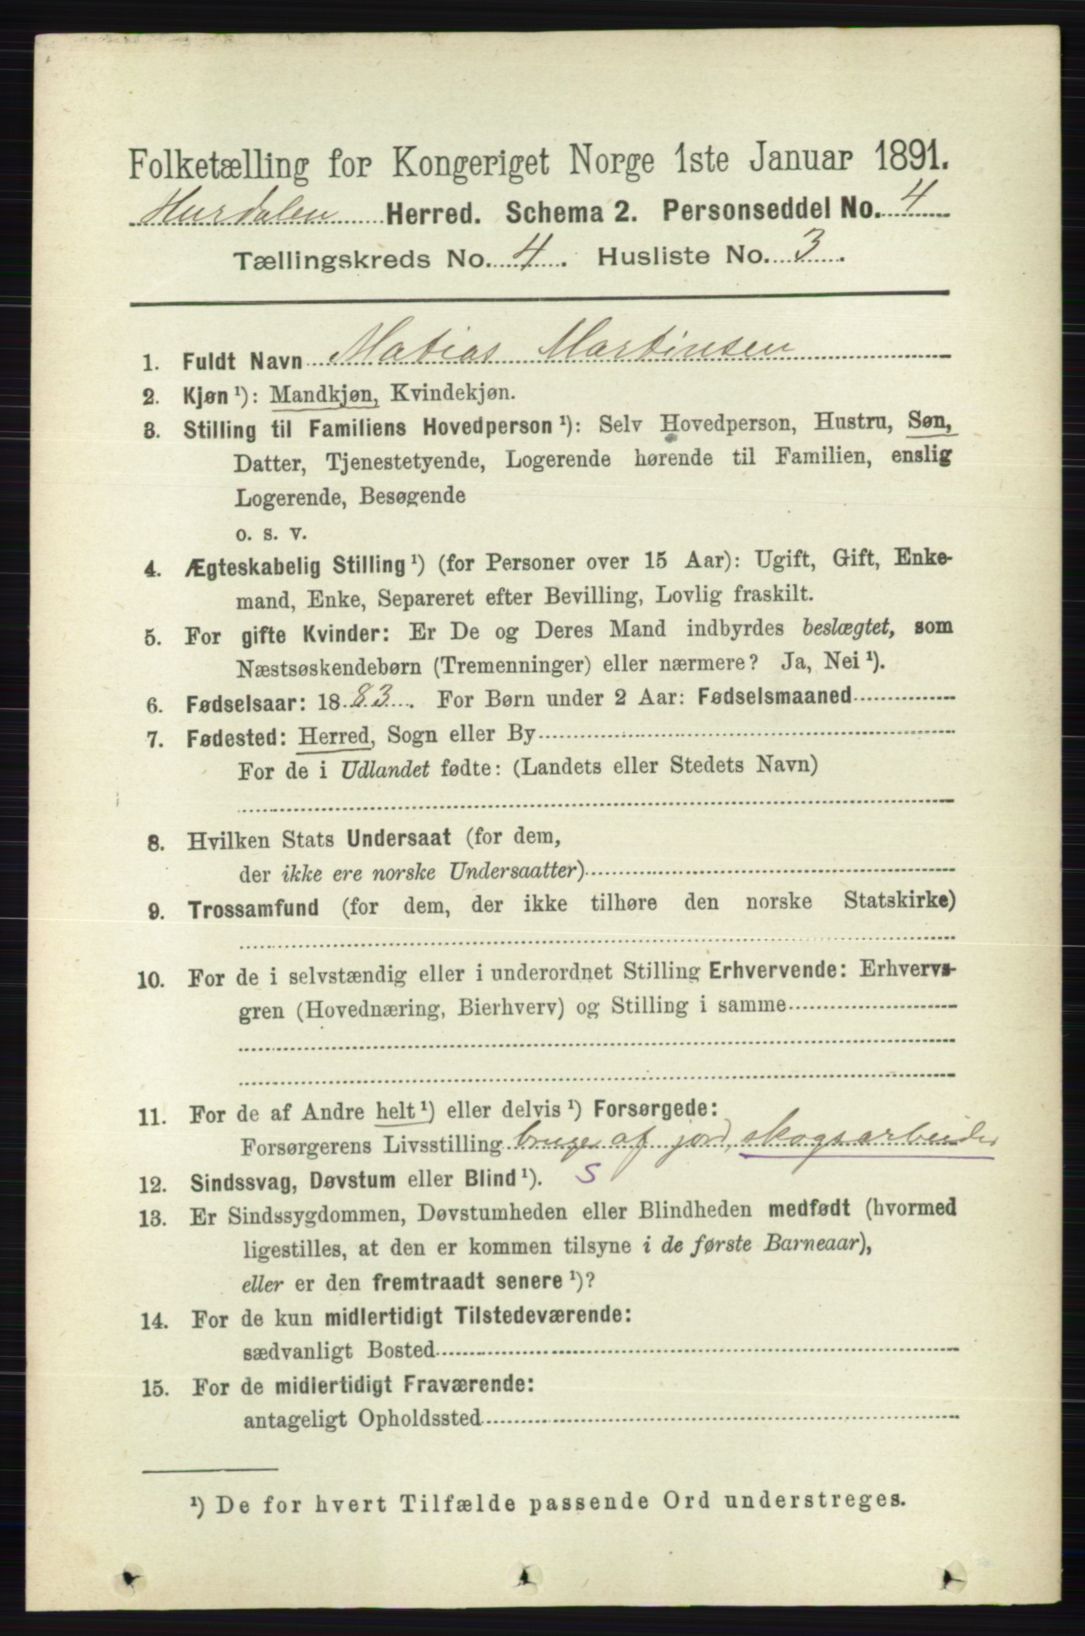 Folketælling for Kongeriget Norge 1ste Januar 1891.
Hurdalen Herred. Schema 2. Personseddel No. 4
Tællingskreds No. 4. Husliste No. 3.
1. Fuldt Navn Matias Martinsen
2. Kjøn ¹): Mandkjøn, Kvindekjøn.
3. Stilling til Familiens Hovedperson ¹): Selv Hovedperson, Hustru, Søn,
Datter, Tjenestetyende, Logerende hørende til Familien, enslig
Logerende, Besøgende
o. s. v.
4. Ægteskabelig Stilling ¹) (for Personer over 15 Aar): Ugift, Gift, Enke-
mand, Enke, Separeret efter Bevilling, Lovlig fraskilt.
5. For gifte Kvinder: Er De og Deres Mand indbyrdes beslægtet, som
Næstsøskendebørn (Tremenninger) eller nærmere? Ja, Nei ¹).
6. Fødselsaar: 1883. For Børn under 2 Aar: Fødselsmaaned
7. Fødested: Herred, Sogn eller By
For de i Udlandet fødte: (Landets eller Stedets Navn)
8. Hvilken Stats Undersaat (for dem,
der ikke ere norske Undersaatter)
9. Trossamfund (for dem, der ikke tilhøre den norske Statskirke)
10. For de i selvstændig eller i underordnet Stilling Erhvervende: Erhvervs-
gren (Hovednæring, Bierhverv) og Stilling i samme
11. For de af Andre helt ¹) eller delvis ¹) Forsørgede:
Forsørgerens Livsstilling bruger af jord, skogsarbeider
12. Sindssvag, Døvstum eller Blind ¹). S
13. Er Sindssygdommen, Døvstumheden eller Blindheden medfødt (hvormed
ligestilles, at den er kommen tilsyne i de første Barneaar),
eller er den fremtraadt senere ¹)?
14. For de kun midlertidigt Tilstedeværende:
sædvanligt Bosted
15. For de midlertidigt Fraværende:
antageligt Opholdssted
¹) De for hvert Tilfælde passende Ord understreges.